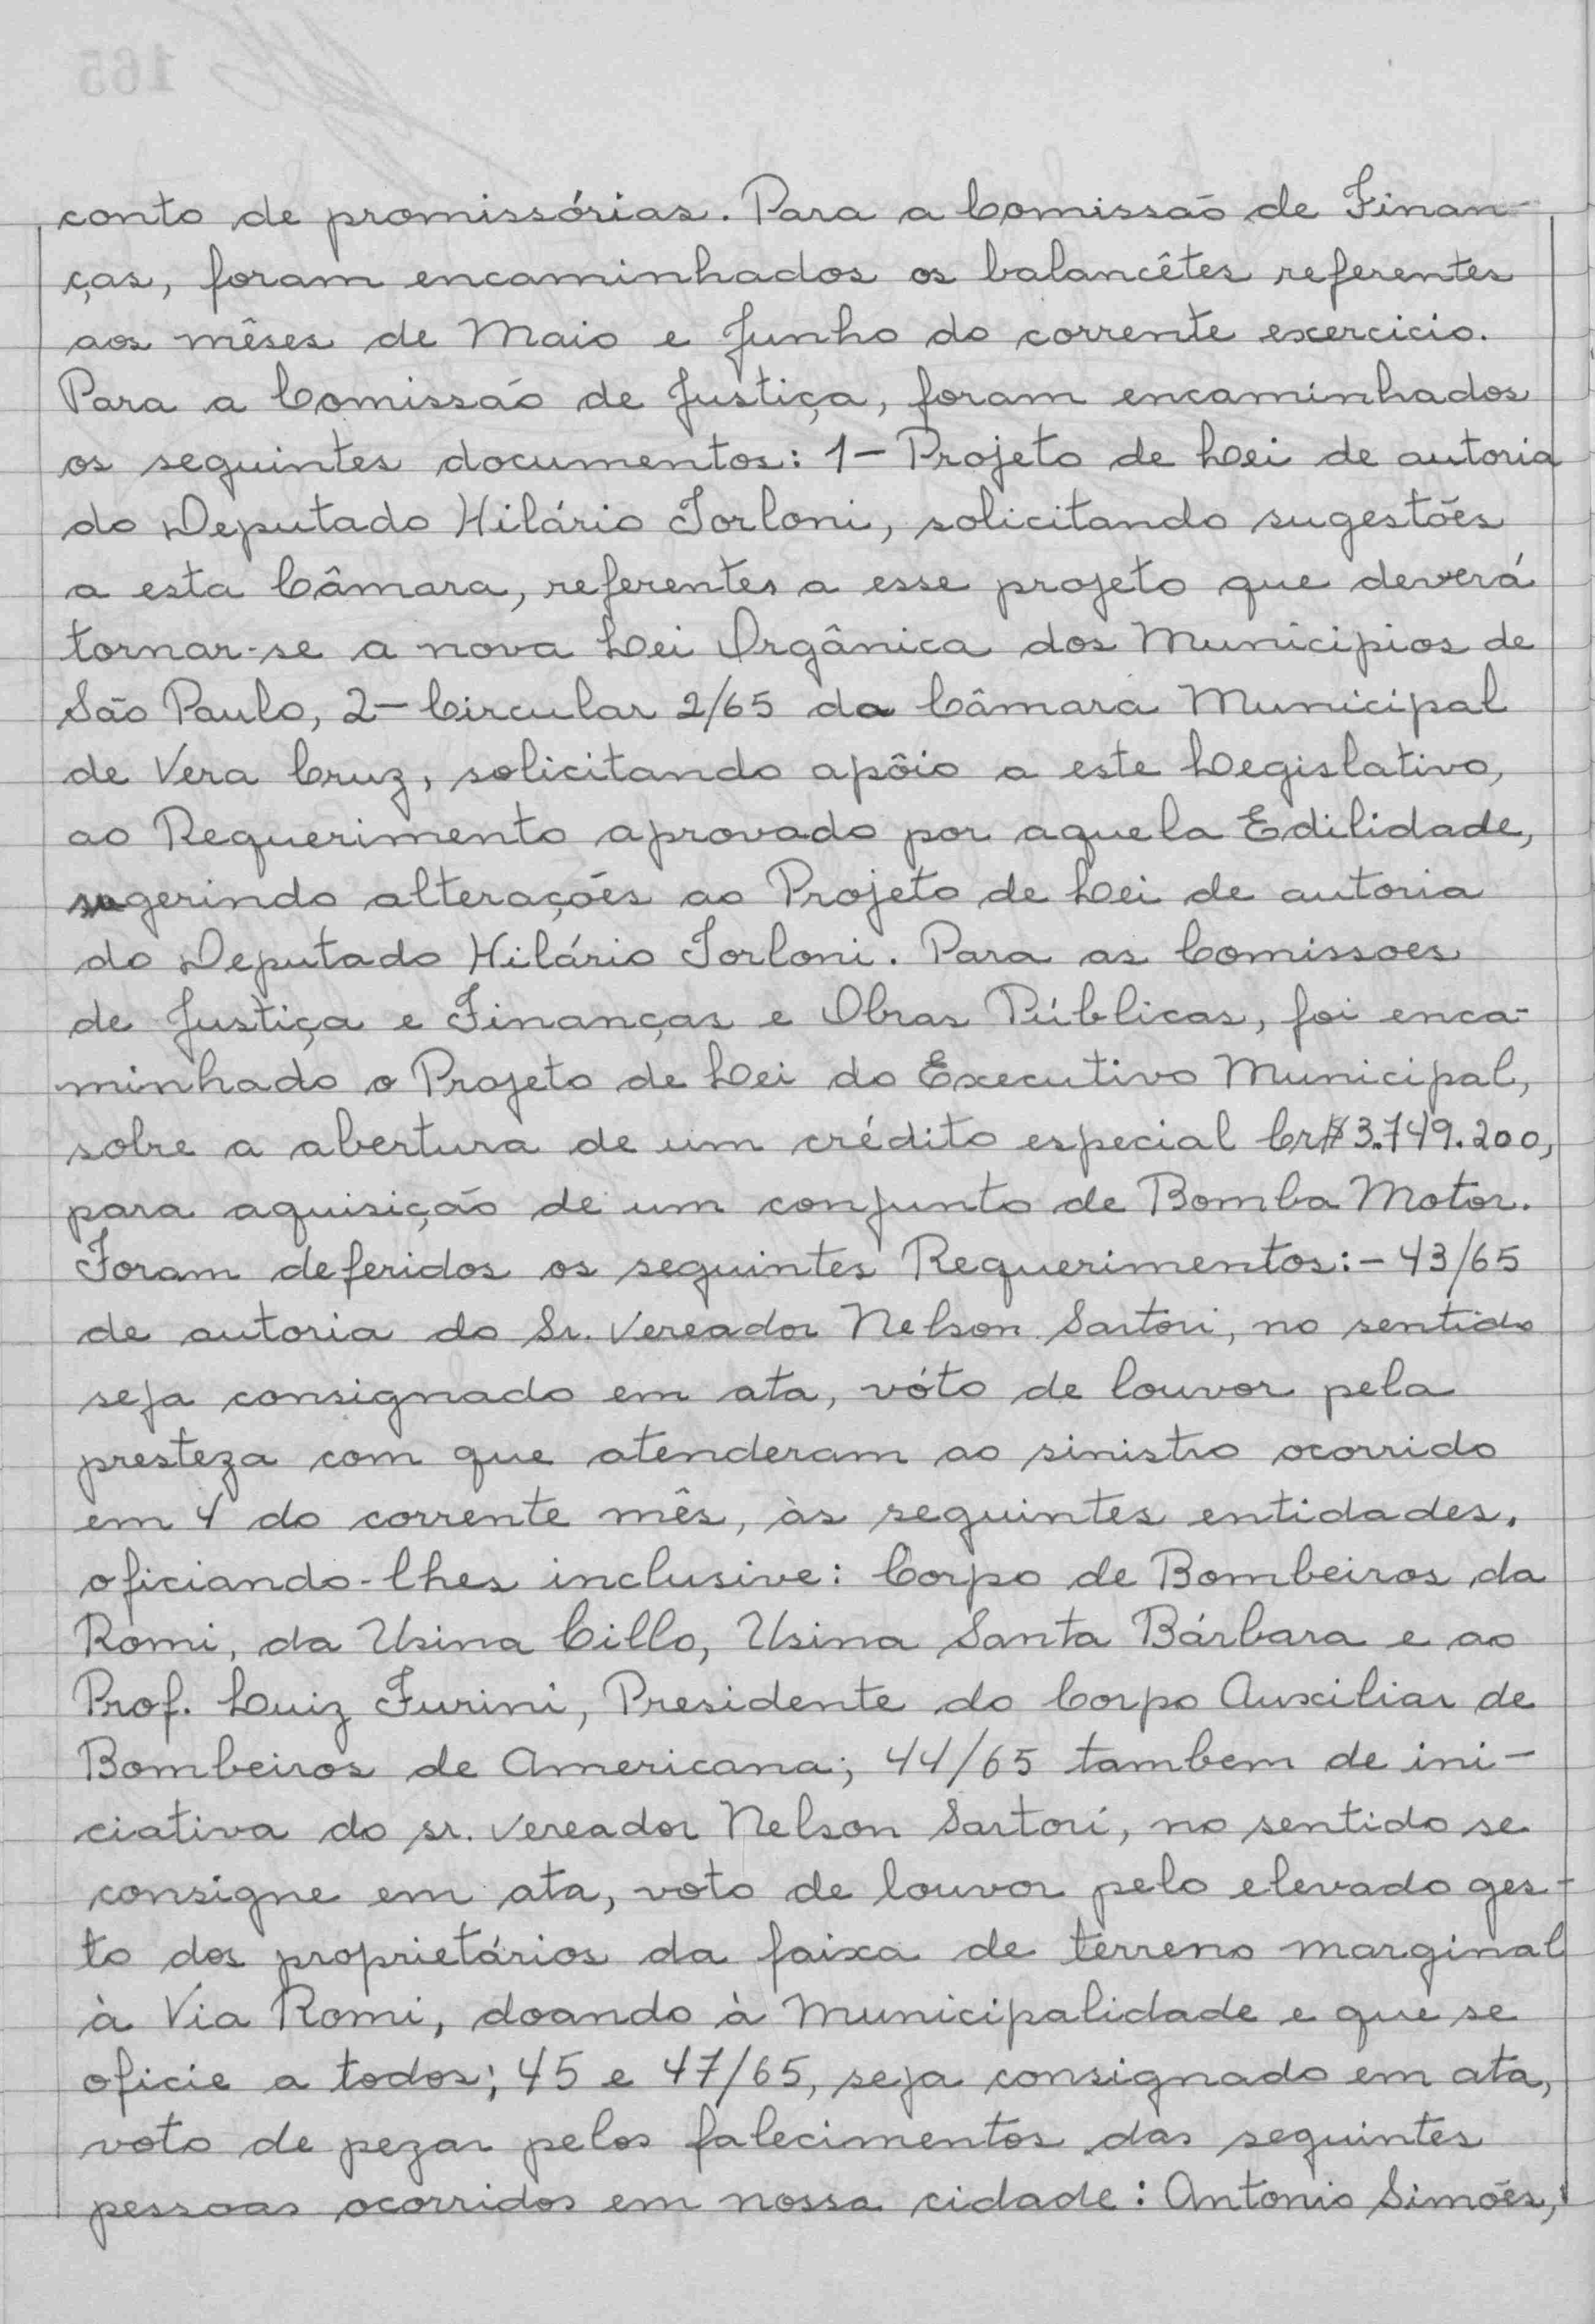 conto de promissórias. Para a Comissão de Finan-
ças, foram encaminhados os balancêtes referentes
aos mêses de Maio e Junho do corrente exercicio.
Para a Comissão de Justiça, foram encaminhados
os seguintes documentos: 1- Projeto de Lei de autoria
do Deputado Hilário Torloni, solicitando sugestões
a esta Câmara, referentes a esse projeto que deverá
tornar-se a nova Lei Orgânica dos Municipios de
São Paulo, 2- Circular 2/65 da Câmara Municipal
de Vera Cruz, solicitando apôio a este Legislativo,
ao Requerimento aprovado por aquela Edilidade,
sugerindo alterações ao Projeto de Lei de autoria
do Deputado Hilário Torloni. Para as Comissoes
de Justiça e Finanças e Obras Públicas, foi enca-
minhado o Projeto de Lei do Executivo Municipal,
sobre a abertura de um crédito especial Cr$ 3.749.200,
para aquisição de um conjunto de Bomba Motor.
Foram deferidos os seguintes Requerimentos:- 43/65
de autoria do Sr. Vereador Nelson Sartori, no sentido
seja consignado em ata, vóto de louvor pela
presteza com que atenderam ao sinistro ocorrido
em 4 do corrente mês, às seguintes entidades,
oficiando-lhes inclusive: Corpo de Bombeiros da
Romi, da Usina Cillo, Usina Santa Bárbara e ao
Prof. Luiz Furini, Presidente do Corpo Auxiliar de
Bombeiros de Americana; 44/65 tambem de ini-
ciativa do sr. Vereador Nelson Sartori, no sentido se
consigne em ata, voto de louvor pelo elevado ges-
to dos proprietários da faixa de terreno marginal
à Via Romi, doando à Municipalidade e que se
oficie a todos; 45 e 47/65, seja consignado em ata,
voto de pezar pelos falecimentos das seguintes
pessoas ocorridos em nossa cidade: Antonio Simões,